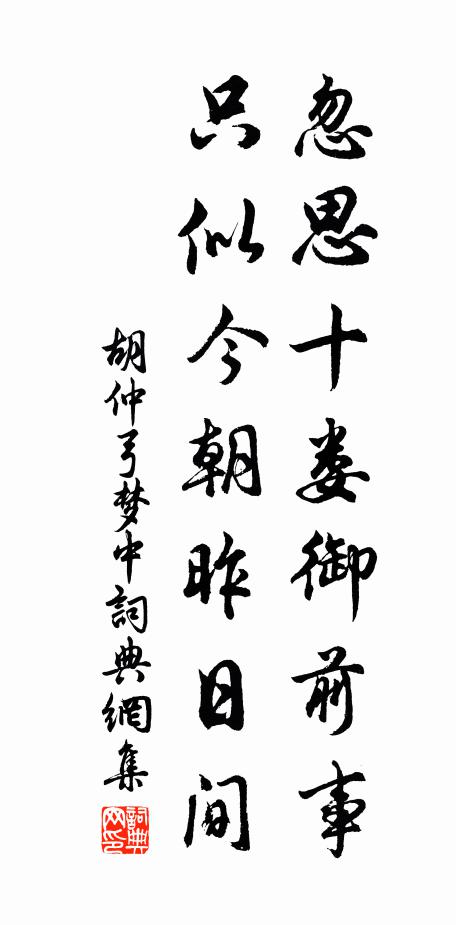 忽思十娄御前事
只似今朝昨日间
胡仲弓梦中詞典網集
詞典网印